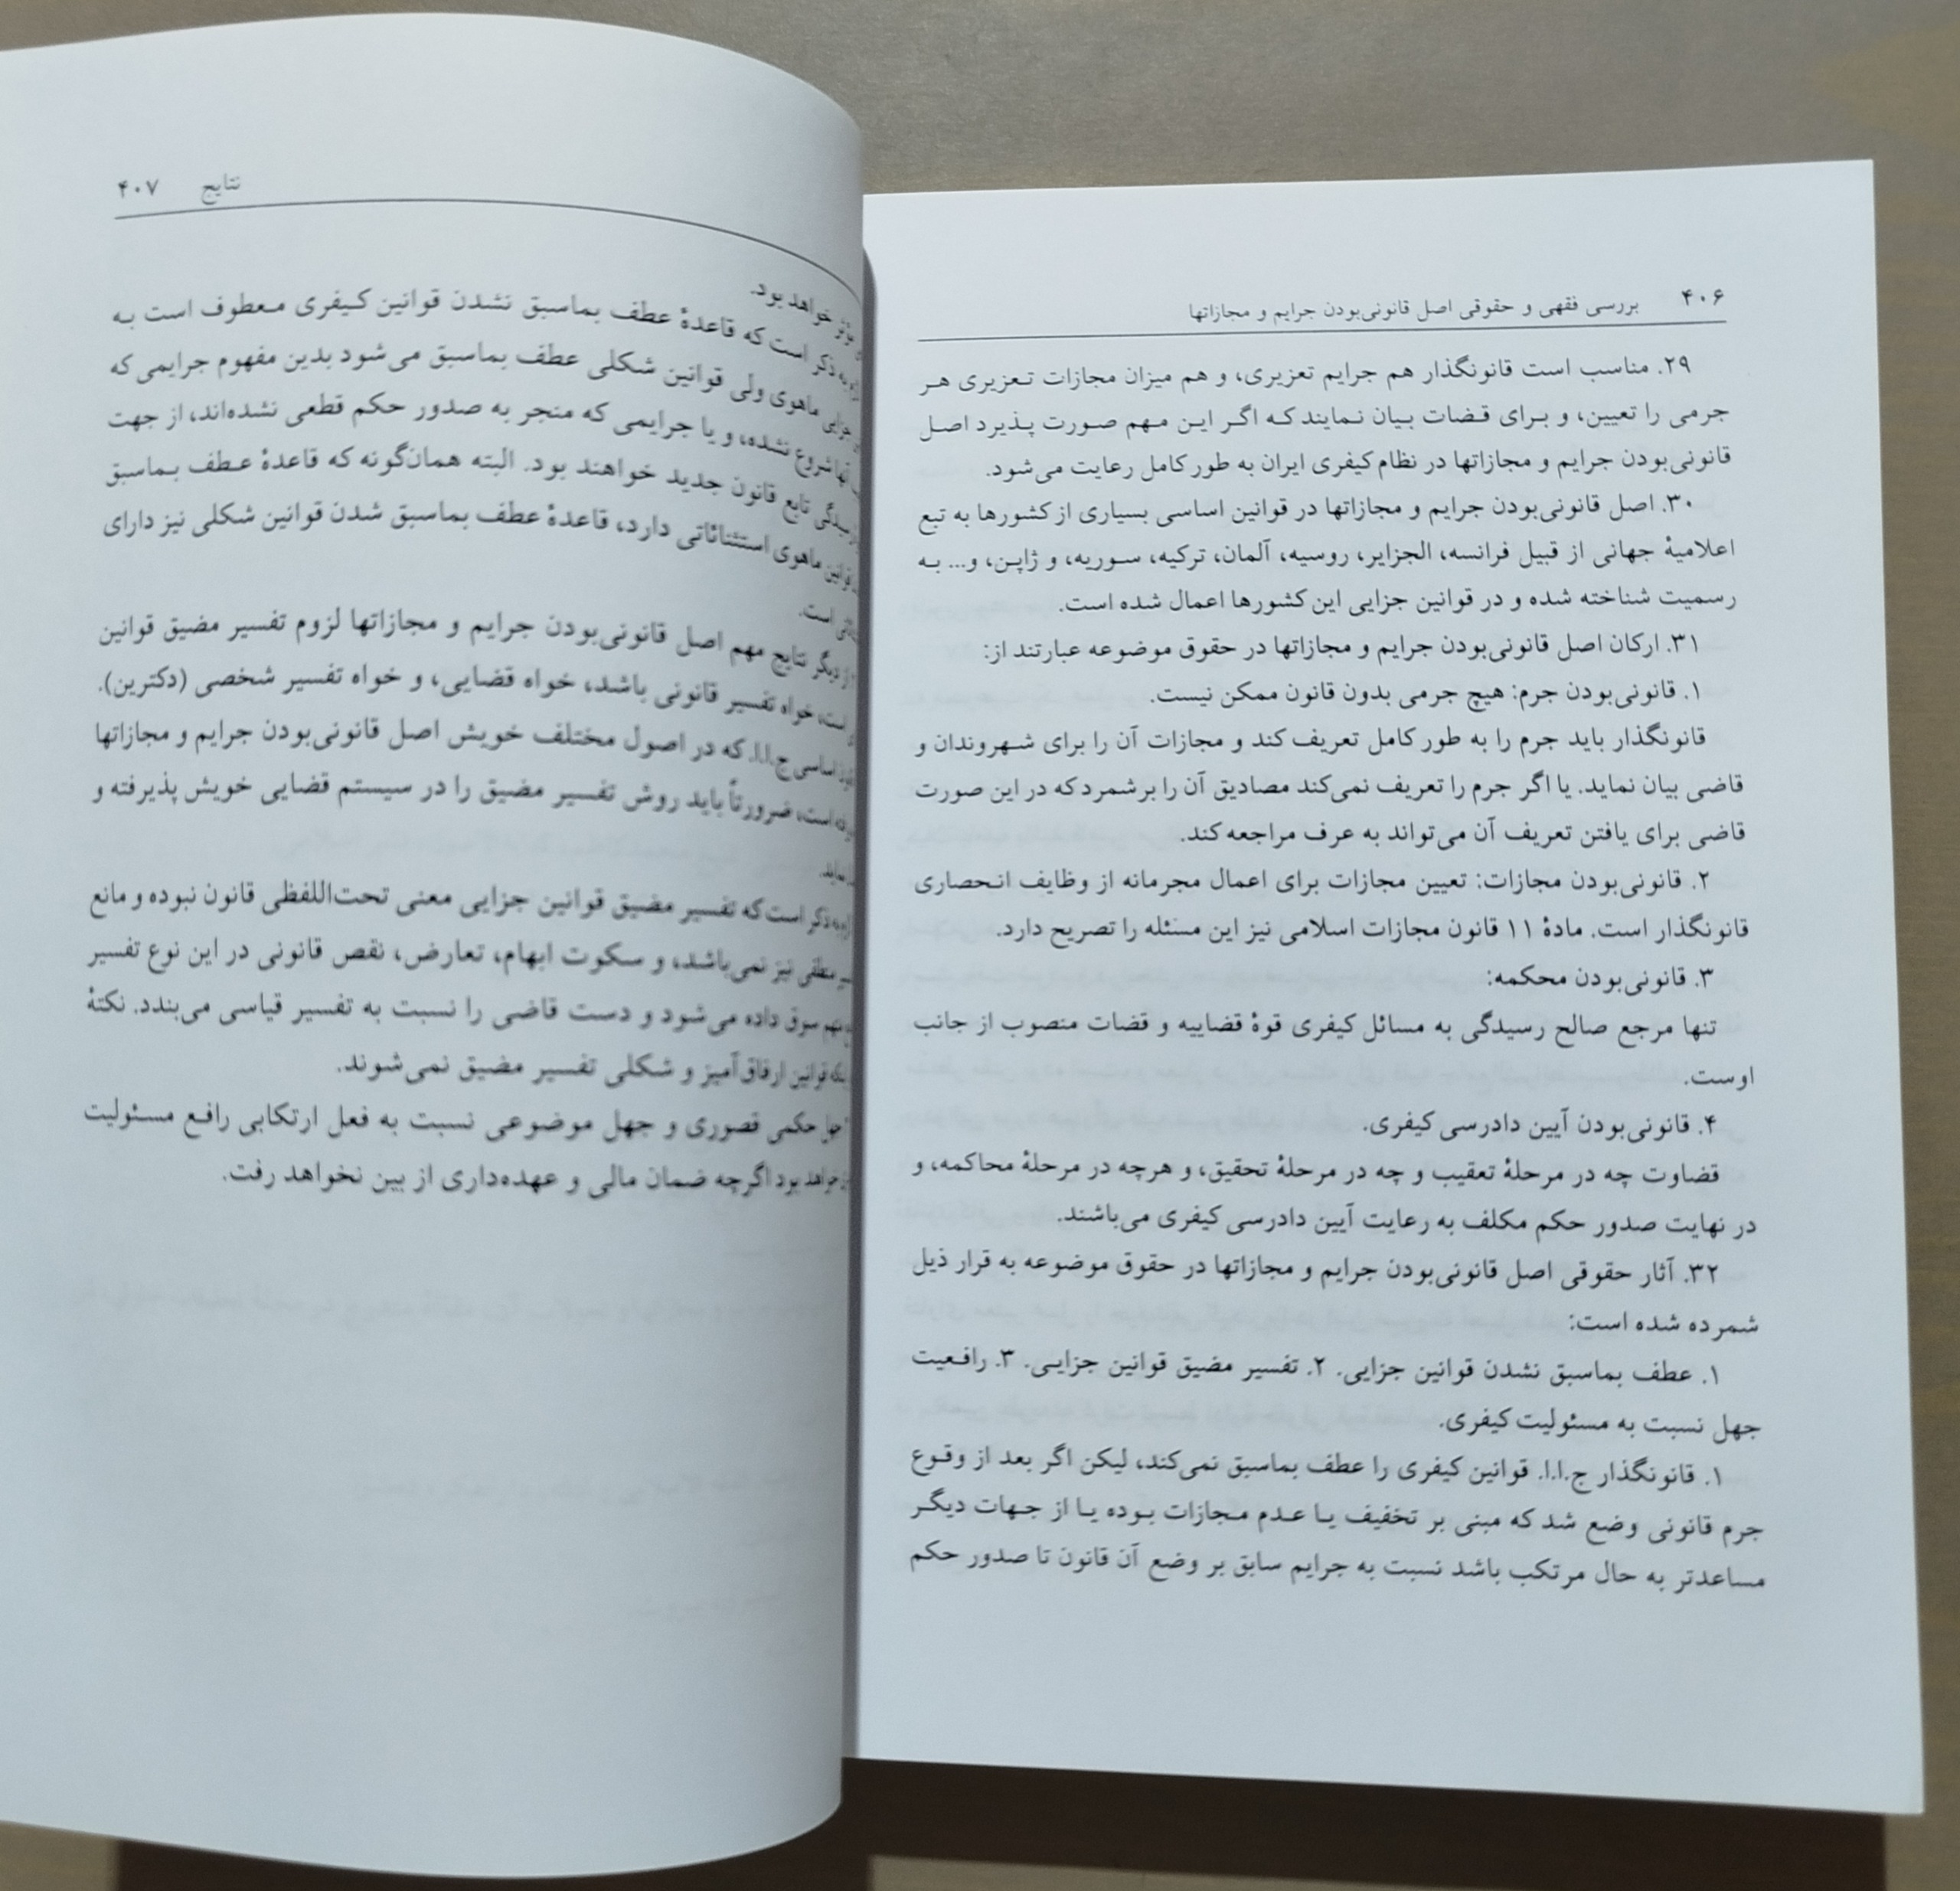 ۴۰۶ بررسی فقهی و حقوقی اصل قانونی‌بودن جرایم و مجازاتها
۲۹. مناسب است قانونگذار هم جرایم تعزیری، و هم میزان مجازات تعزیری هر
جرمی را تعیین، و برای قضات بیان نمایند که اگر این مهم صورت پذیرد اصل
قانونی‌بودن جرایم و مجازاتها در نظام کیفری ایران به طور کامل رعایت می‌شود.
۳۰. اصل قانونی‌بودن جرایم و مجازاتها در قوانین اساسی بسیاری از کشورها به تبع
اعلامیهٔ جهانی از قبیل فرانسه، الجزایر، روسیه، آلمان، ترکیه، سوریه، و ژاپن، و... به
رسمیت شناخته شده و در قوانین جزایی این کشورها اعمال شده است.
۳۱. ارکان اصل قانونی‌بودن جرایم و مجازاتها در حقوق موضوعه عبارتند از:
۱. قانونی‌بودن جرم: هیچ جرمی بدون قانون ممکن نیست.
قانونگذار باید جرم را به طور کامل تعریف کند و مجازات آن را برای شهروندان و
قاضی بیان نماید. یا اگر جرم را تعریف نمی‌کند مصادیق آن را برشمرد که در این صورت
قاضی برای یافتن تعریف آن می‌تواند به عرف مراجعه کند.
۲. قانونی‌بودن مجازات: تعیین مجازات برای اعمال مجرمانه از وظایف انحصاری
قانونگذار است. مادهٔ ۱۱ قانون مجازات اسلامی نیز این مسئله را تصریح دارد.
۳. قانونی‌بودن محکمه:
تنها مرجع صالح رسیدگی به مسائل کیفری قوهٔ قضاییه و قضات منصوب از جانب
اوست.
۴. قانونی‌بودن آیین دادرسی کیفری.
قضاوت چه در مرحلهٔ تعقیب و چه در مرحلهٔ تحقیق، و هرچه در مرحلهٔ محاکمه، و
در نهایت صدور حکم مکلف به رعایت آیین دادرسی کیفری می‌باشند.
۳۲. آثار حقوقی اصل قانونی‌بودن جرایم و مجازاتها در حقوق موضوعه به قرار ذیل
شمرده شده است:
۱. عطف بماسبق نشدن قوانین جزایی. ۲. تفسیر مضیق قوانین جزایی. ۳. رافعیت
جهل نسبت به مسئولیت کیفری.
۱. قانونگذار ج.ا.ا. قوانین کیفری را عطف بماسبق نمی‌کند، لیکن اگر بعد از وقوع
جرم قانونی وضع شد که مبنی بر تخفیف یا عدم مجازات بوده یا از جهات دیگر
مساعدتر به حال مرتکب باشد نسبت به جرایم سابق بر وضع آن قانون تا صدور حکم
نتایج ۴۰۷
مؤثر خواهد بود.
به ذکر است که قاعدهٔ عطف بماسبق نشدن قوانین کیفری معطوف است به
جزایی ماهوی ولی قوانین شکلی عطف بماسبق می‌شود بدین مفهوم جرایمی که
آنها شروع نشده، و یا جرایمی که منجر به صدور حکم قطعی نشده‌اند، از جهت
رسیدگی تابع قانون جدید خواهند بود. البته همان‌گونه که قاعدهٔ عطف بماسبق
قوانین ماهوی استثنائاتی دارد، قاعدهٔ عطف بماسبق شدن قوانین شکلی نیز دارای
است.
از دیگر نتایج مهم اصل قانونی‌بودن جرایم و مجازاتها لزوم تفسیر مضیق قوانین
خواه تفسیر قانونی باشد، خواه قضایی، و خواه تفسیر شخصی (دکترین).
اساسی ج.ا.ا. که در اصول مختلف خویش اصل قانونی‌بودن جرایم و مجازاتها
است، ضرورتاً باید روش تفسیر مضیق را در سیستم قضایی خویش پذیرفته و
نماید.
ذکر است که تفسیر مضیق قوانین جزایی معنی تحت‌اللفظی قانون نبوده و مانع
منطقی نیز نمی‌باشد، و سکوت ابهام، تعارض، نقص قانونی در این نوع تفسیر
سوق داده می‌شود و دست قاضی را نسبت به تفسیر قیاسی می‌بندد. نکتهٔ
اینکه قوانین ارفاق‌آمیز و شکلی تفسیر مضیق نمی‌شوند.
جهل حکمی قصوری و جهل موضوعی نسبت به فعل ارتکابی رافع مسئولیت
خواهد بود اگرچه ضمان مالی و عهده‌داری از بین نخواهد رفت.